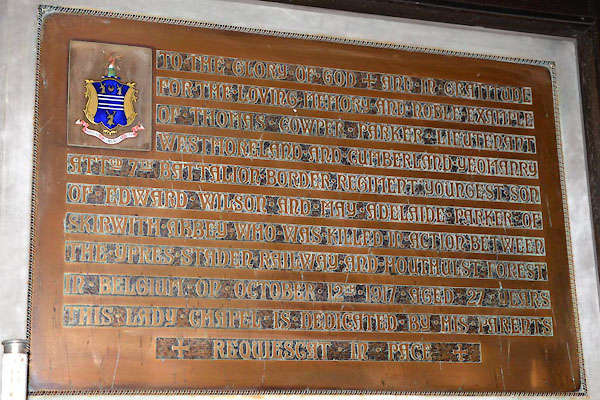 TO THE GLORY OF GOD + AND IN GRATITUDE
FOR THE LOVING MEMORY AND NOBLE EXAMPLE
OF THOMAS COWPER PARKER LIEUTENANT
WESTMORELAND AND CUMBERLAND YEOMANRY
ATTD 7TH BATTALION BORDER REGIMENT YOUNGEST SON
OF EDWARD WILSON AND MAY ADELAIDE PARKER OF
SKIRWITH ABBEY WHO WAS KILLED IN ACTION BETWEEN
THE YPRES STADEN RAILWAY AND HOUTHULST FOREST
IN BELGIUM ON OCTOBER 1917 AGED 27 YEARS
THIS LADY CHAPEL IS DEDICATED BY HIS PARENTS
+ REQUIESCAT IN PACE +